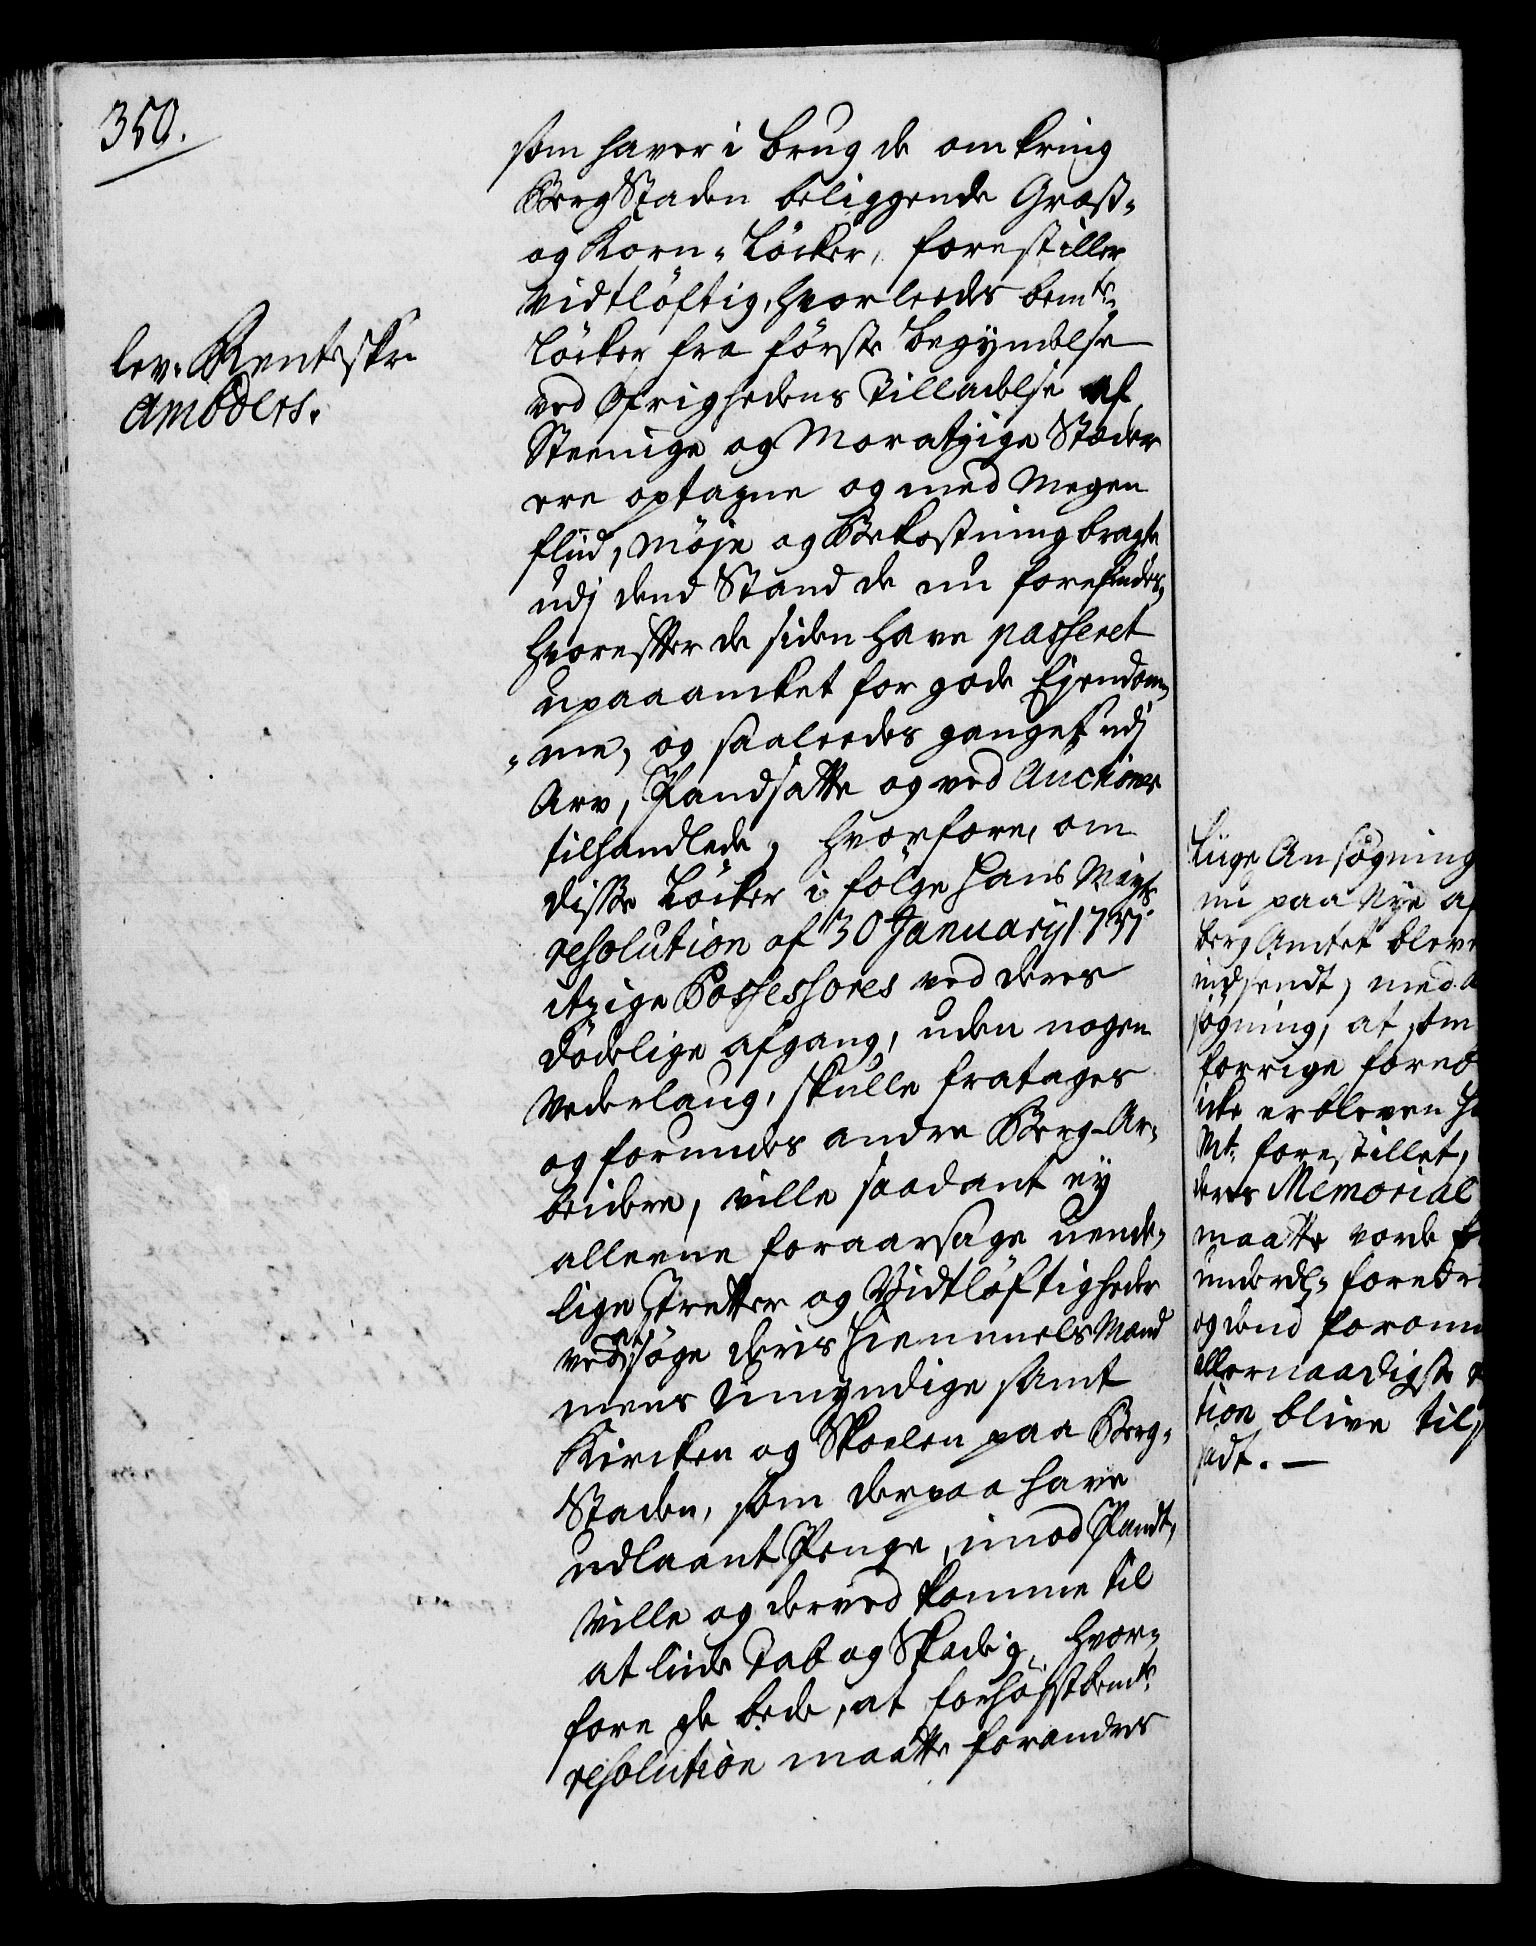 350.
lev. Rentskr.
Ambders.
som haver i brug de omkring
BergStaden beliggende Græs-
og Korn-Löcker, forestiller
vidtløftig, hvorleedes bemte
Löcker fra første begyndelse
ved Øfrighedens Tilladelse af
Steenige og Moratzige Stæder
ere optagne og med megen
fliid, møje og Bekostning bragte
udj dend Stand de nu forefindes,
hvorefter de siden have passeret
upaaancket for gode Ejendom-
-me, og saaleedes ganget udj
Arv, Pandsatte og ved Auctioner
tilhandlede, hvorfore, om
disse Löcker i følge Hans Mayts
resolution af 30 January 1731
itzige Possessores ved deres
dödelige afgang, uden nogen
Vederlaug, skulle fratages
og forundes andre Berg-Ar-
beidere, ville saadant ey
alleene foraarsage uende-
lige Tretter og Vidtløftigheder
ved at søge deris Hiemmels Mænd
mens Umyndige samt
Kircken og Skoelen paa Berg-
Staden, som derpaa have
udlaant Penge, imod Pandt,
ville og derved komme til
at liide Tab og Skade, hvor-
fore de bede, at forhøystbemte
resolution maatte forandres
Liige Ansøgning
nu paa Nye af
berg Amtet bleve
indsendt, med
søgning, at som
forrige
icke er bleven
Mt. forestillet,
deres Memorial
maatte vorde
underd.
og dend
allernaadigste
tion blive